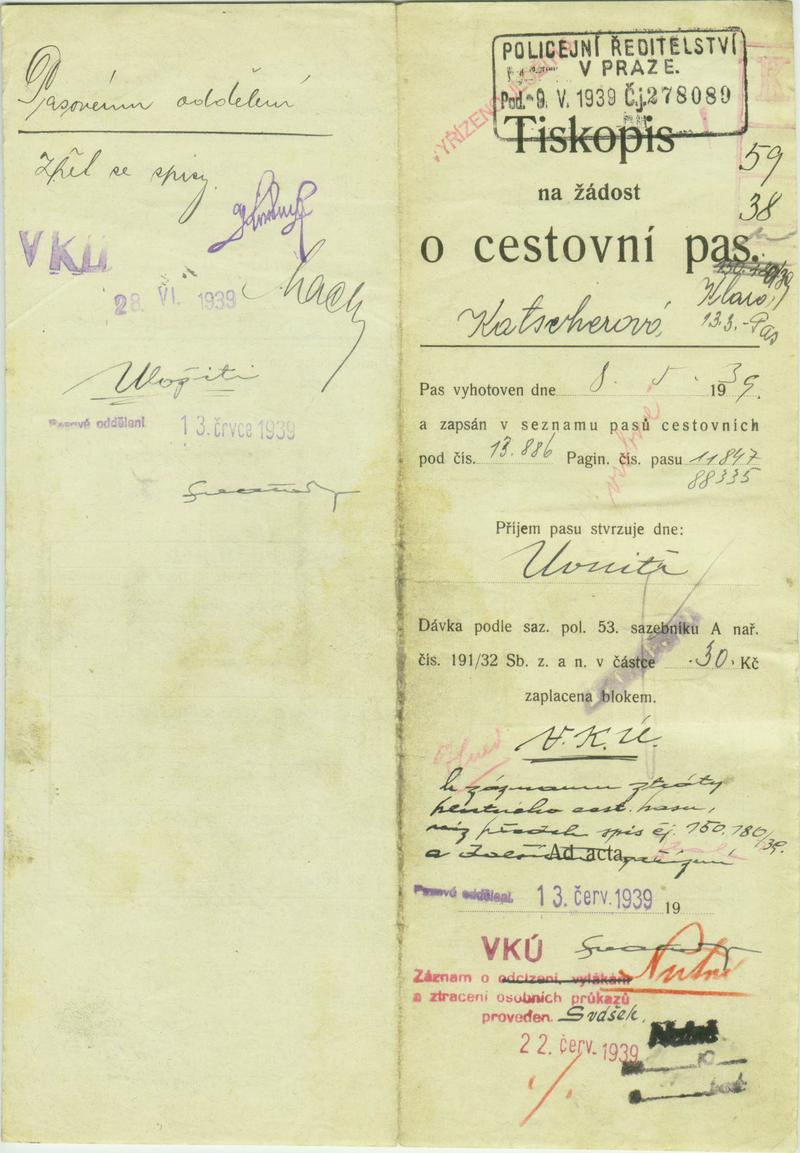 Pasovému oddělení
Zřel se spisy.
VKÚ
28. VI. 1939
Uložiti
Pasové oddělení
13. čvce 1939
POLICEJNÍ ŘEDITELSTVÍ
V PRAZE.
Pod. -9. V. 1939 Čj. 278089
VYŘÍZENO
Tiskopis
59
38
na žádost
o cestovní pas.
Klara,
Katscherová, 13.3.-Pas
Pas vyhotoven dne 8. 5. 1939.
a zapsán v seznamu pasů cestovních
pod čís. 13.886 Pagin. čís. pasu 11847
88335
Příjem pasu stvrzuje dne:
Uvnitř
Dávka podle saz. pol. 53. sazebníku A nař.
čís. 191/32 Sb. z. a n. v částce 30. Kč
zaplacena blokem.
V.K.Ú.
k záznamu ztráty
cest. pasu,
viz předch spis čj. 150.180/39.
a
Ad acta
Pasové oddělení. 13. červ. 1939 19
VKÚ
Nutné
Záznam o odcizení, vylákání
a ztracení osobních průkazů
proveden. Svášek.
22. červ. 1939
Nutné